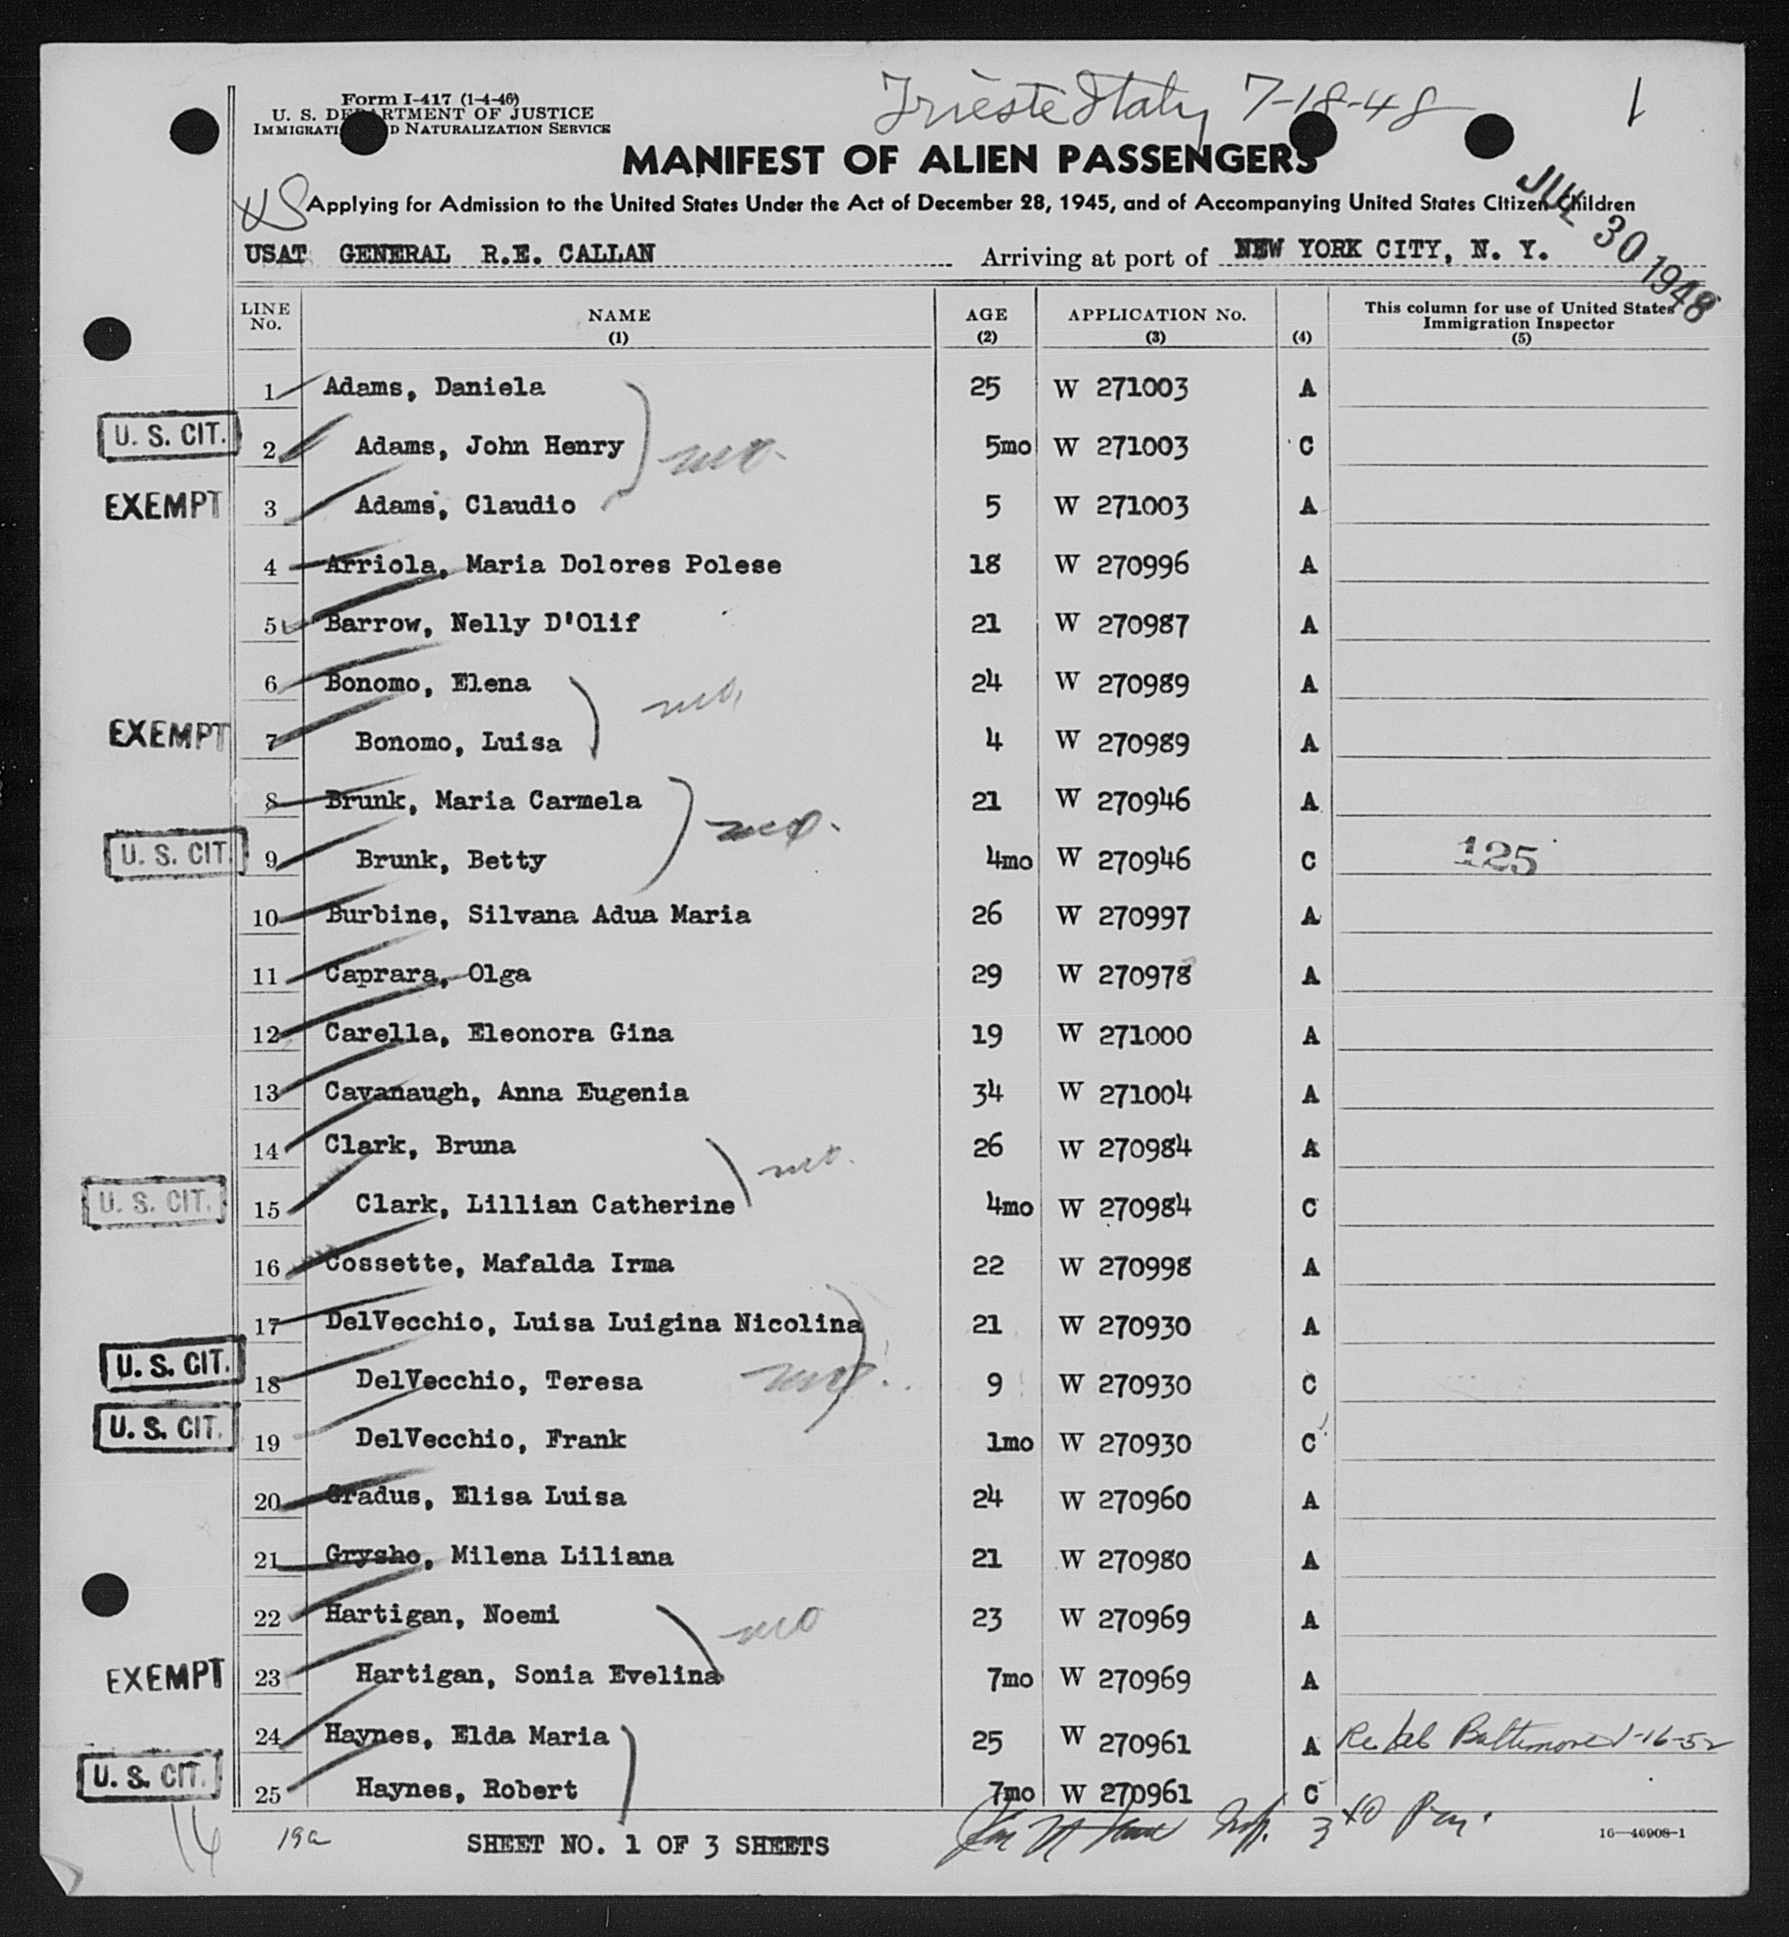 Form I-417 (1-4-46)
U. S. DEPARTMENT OF JUSTICE
IMMIGRATION AND NATURALIZATION SERVICE
Trieste Italy 7-18-48
1
MANIFEST OF ALIEN PASSENGERS
US
Applying for Admission to the United States Under the Act of December 28, 1945, and of Accompanying United States Citizen Children
JUL 30 1948
USAT GENERAL R.E. CALLAN Arriving at port of NEW YORK CITY, N. Y.
LINE No. NAME (1) AGE (2) APPLICATION No. (3) (4) This column for use of United States Immigration Inspector (5)
1 Adams, Daniela 25 W 271003 A
U. S. CIT. 2 Adams, John Henry 5mo W 271003 C
EXEMPT 3 Adams, Claudio 5 W 271003 A
4 Arriola, Maria Dolores Polese 18 W 270996 A
5 Barrow, Nelly D'Olif 21 W 270987 A
6 Bonomo, Elena 24 W 270989 A
EXEMPT 7 Bonomo, Luisa 4 W 270989 A
8 Brunk, Maria Carmela 21 W 270946 A
U. S. CIT. 9 Brunk, Betty 4mo W 270946 C 125
10 Burbine, Silvana Adua Maria 26 W 270997 A
11 Caprara, Olga 29 W 270978 A
12 Carella, Eleonora Gina 19 W 271000 A
13 Cavanaugh, Anna Eugenia 34 W 271004 A
14 Clark, Bruna 26 W 270984 A
U. S. CIT. 15 Clark, Lillian Catherine 4mo W 270984 C
16 Cossette, Mafalda Irma 22 W 270998 A
17 DelVecchio, Luisa Luigina Nicolina 21 W 270930 A
U. S. CIT. 18 DelVecchio, Teresa 9 W 270930 C
U. S. CIT. 19 DelVecchio, Frank 1mo W 270930 C
20 Gradus, Elisa Luisa 24 W 270960 A
21 Grysho, Milena Liliana 21 W 270980 A
22 Hartigan, Noemi 23 W 270969 A
EXEMPT 23 Hartigan, Sonia Evelina 7mo W 270969 A
24 Haynes, Elda Maria 25 W 270961 A Baltimore 1-16-52
U. S. CIT. 25 Haynes, Robert 7mo W 270961 C
16 19a SHEET NO. 1 OF 3 SHEETS 3 40 Pm. 16—46908-1